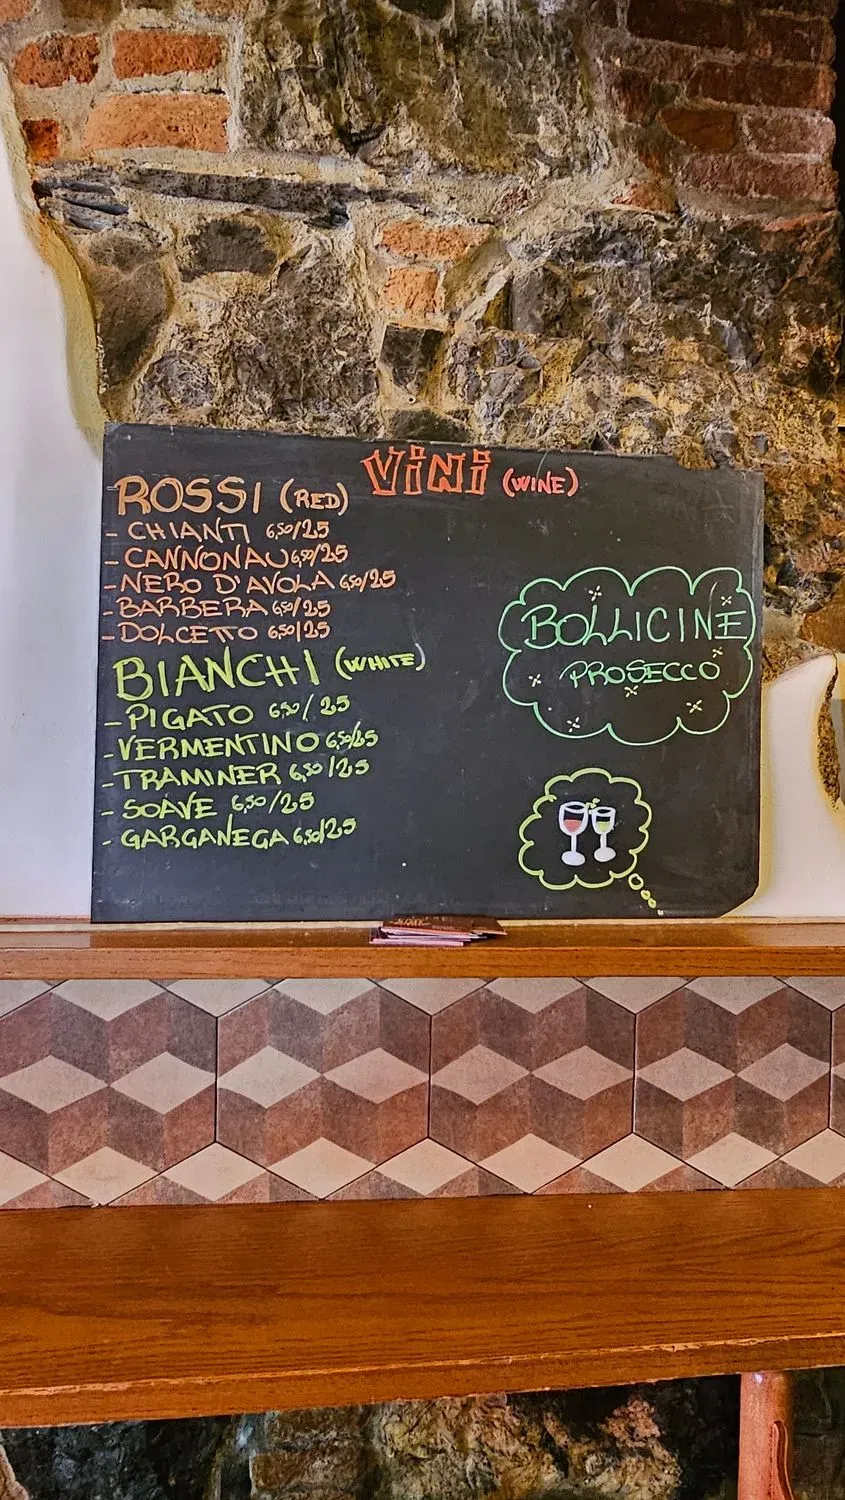 Vini (WINE)
ROSSI (RED)
- CHIANTI 6,50/25
- CANNONAU 6,50/25
- NERO D'AVOLA 6,50/25
- BARBERA 6,50/25
- DOLCETTO 6,50/25
BIANCHI (WHITE)
- PIGATO 6,50/25
- VERMENTINO 6,50/25
- TRAMINER 6,50/25
- SOAVE 6,50/25
- GARGANEGA 6,50/25
BOLLICINE
PROSECCO